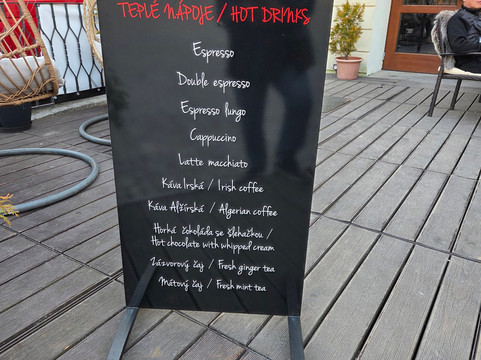 TEPLÉ NÁPOJE / HOT DRINKS
Espresso
Double espresso
Espresso lungo
Cappuccino
Latte macchiato
Káva Irská / Irish coffee
Káva Alžírská / Algerian coffee
Horká čokoláda se šlehačkou /
Hot chocolate with whipped cream
Zázvorový čaj / Fresh ginger tea
Mátový čaj / Fresh mint tea